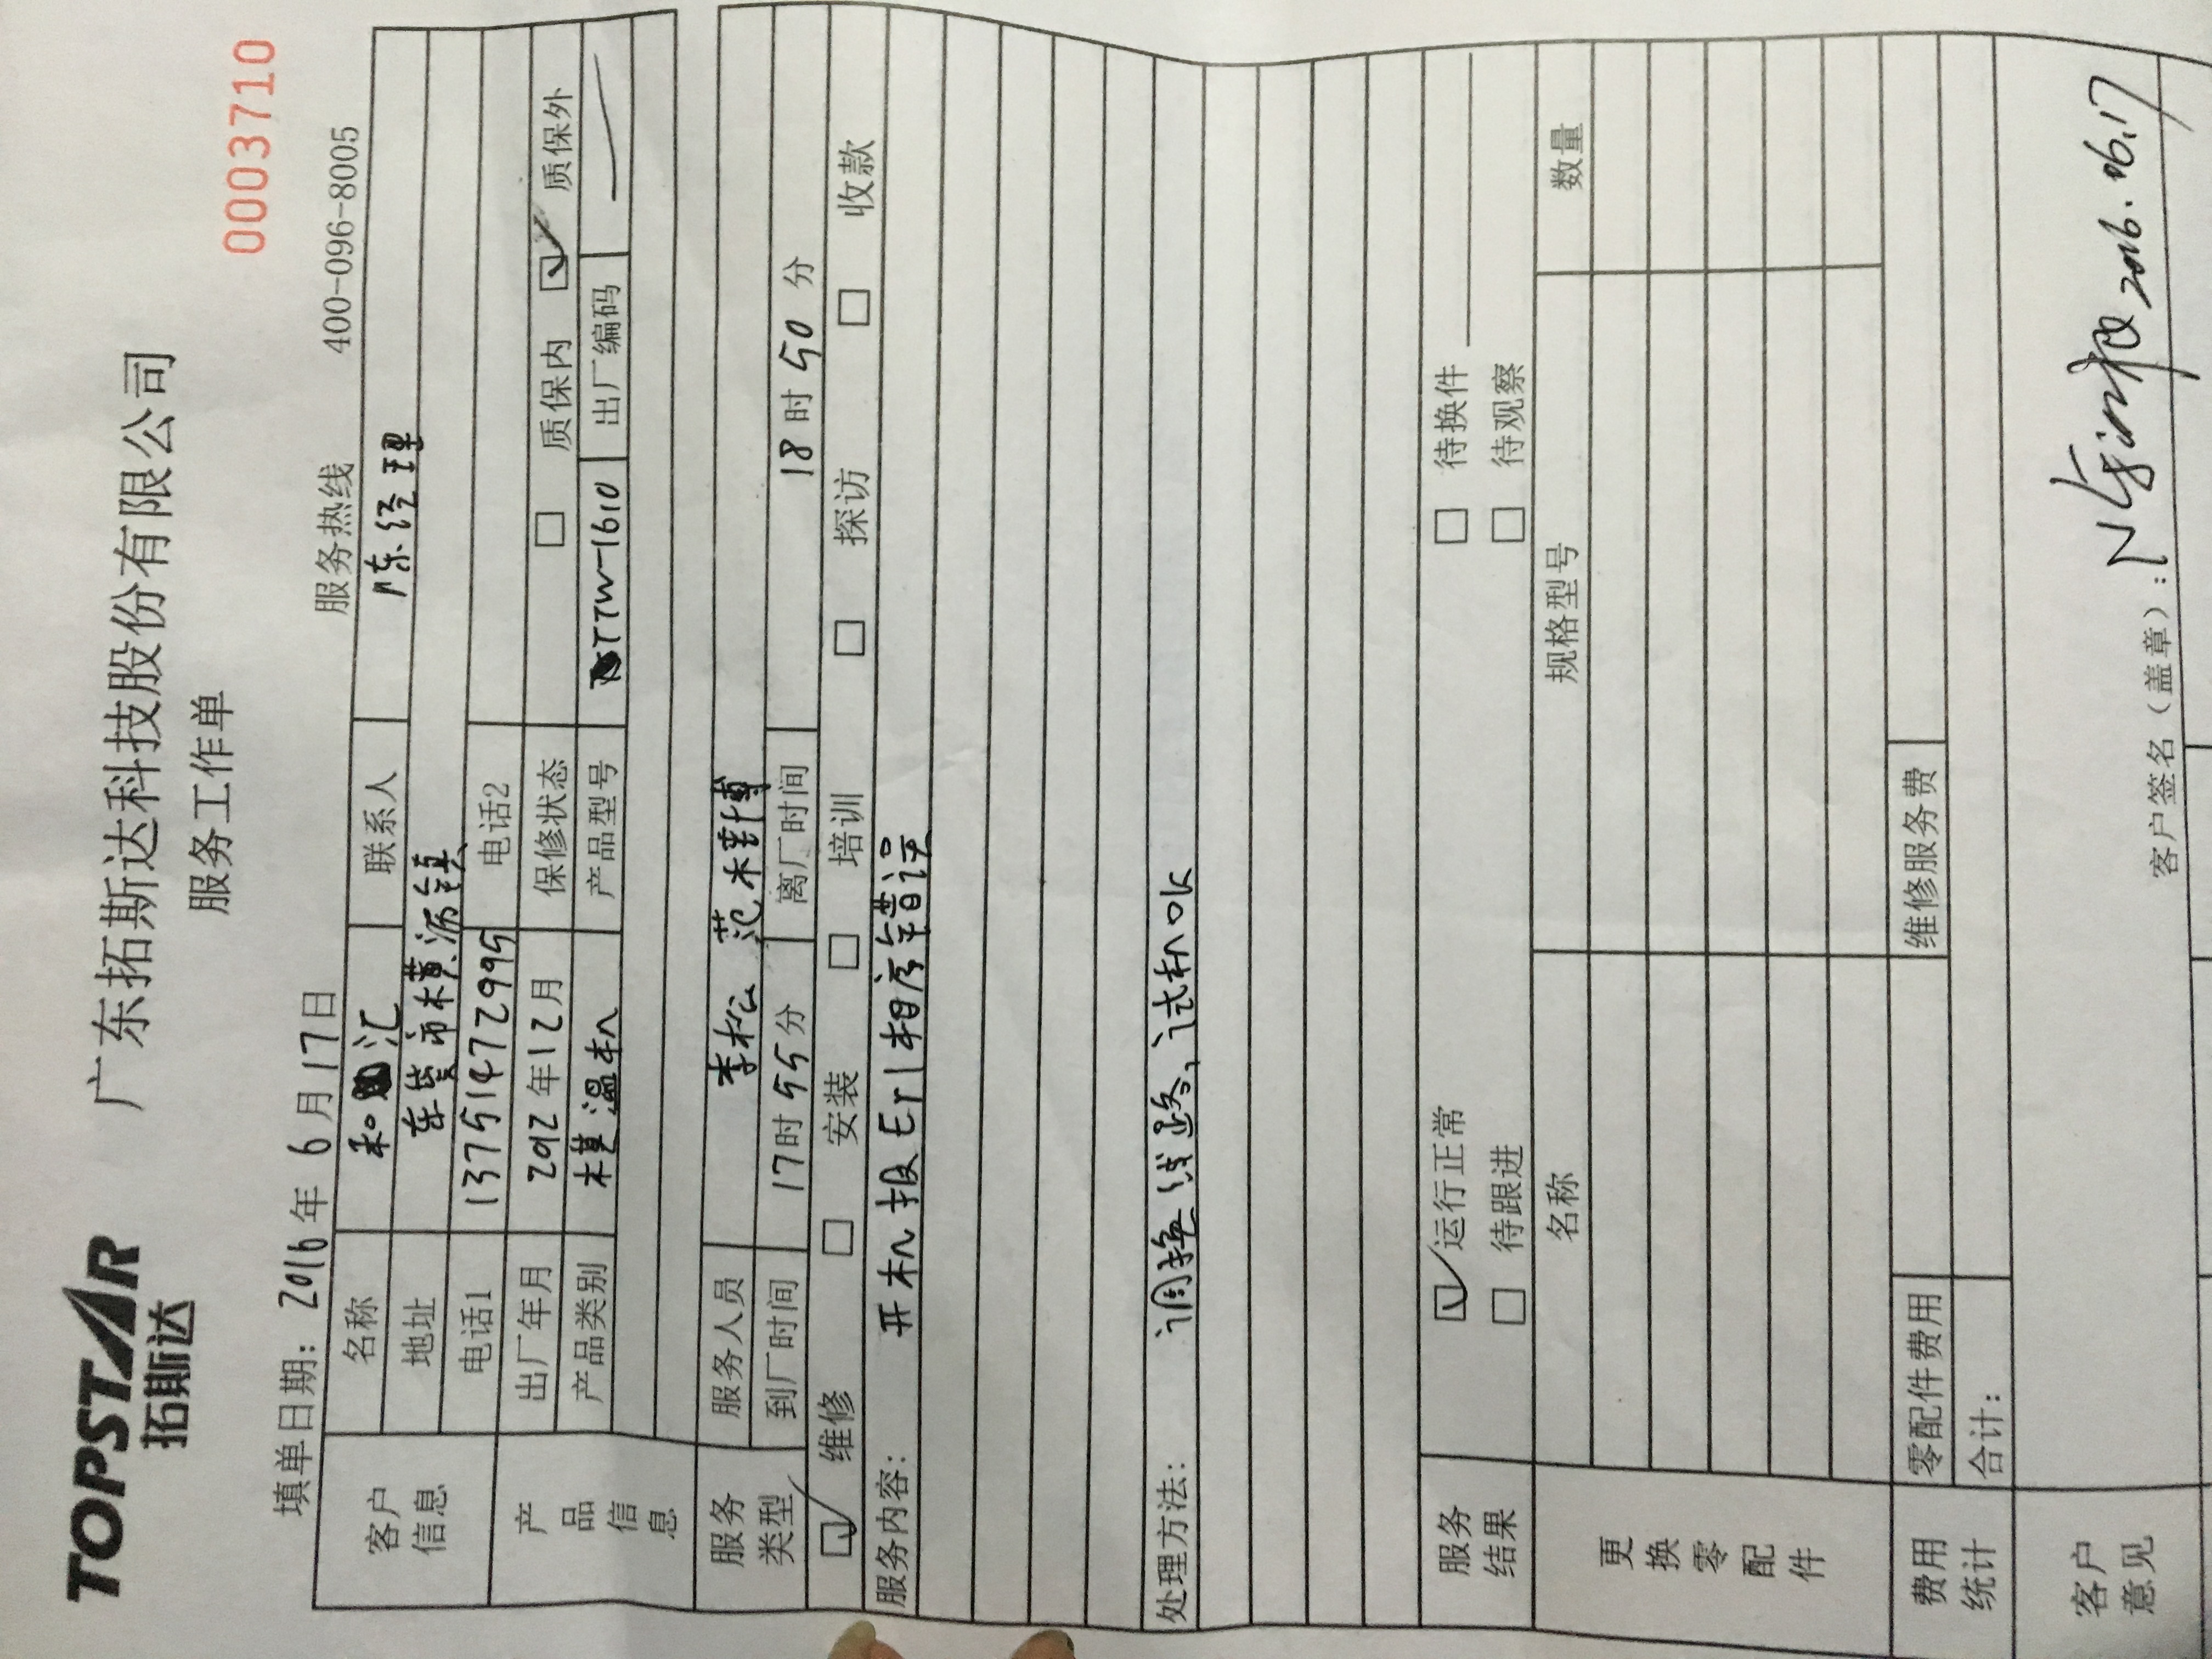 TOPSTAR
拓斯达
广东拓斯达科技股份有限公司
服务工作单
0003710
填单日期: 2016年 6月17日 服务热线 400-096-8005
客户信息
名称 和汇 联系人 陈经理
地址 东莞市横沥镇
电话1 13751472995 电话2
产品信息
出厂年月 2012年12月 保修状态 □ 质保内 ☑ 质保外
产品类别 模温机 产品型号 TTW-1610 出厂编码 —
服务类型
服务人员 李松 范
到厂时间 17时55分 离厂时间 18时50分
☑ 维修 □ 安装 □ 培训 □ 探访 □ 收款
服务内容: 开机报Er1相序错误
处理方法: 调换线路,试机OK
服务结果
☑ 运行正常 □ 待换件
□ 待跟进 □ 待观察
更换零配件
名称 规格型号 数量
费用统计
零配件费用 维修服务费
合计:
客户意见
客户签名(盖章): 2016.06.17